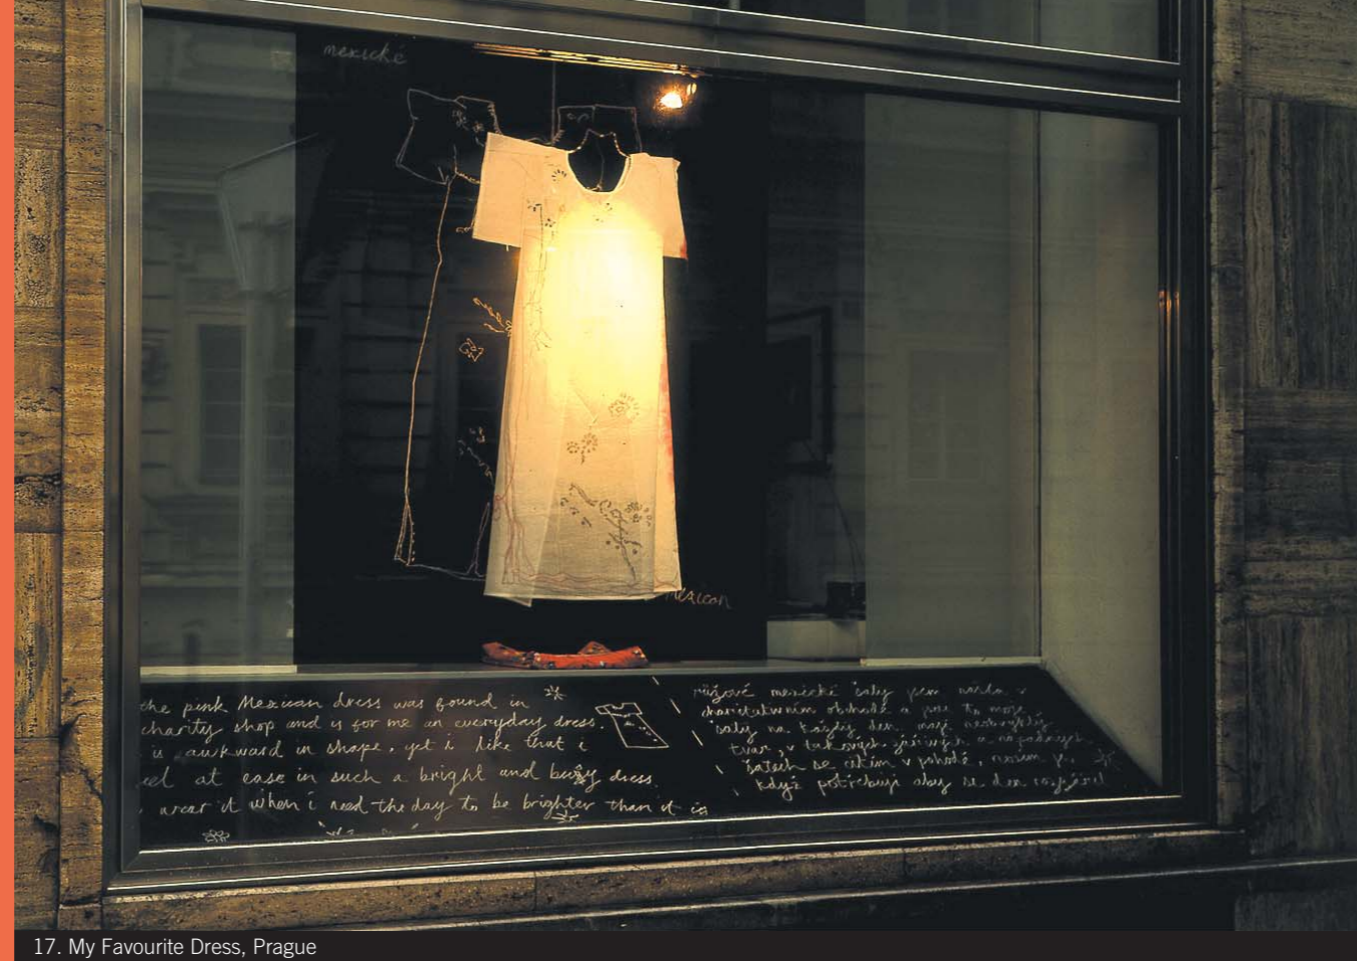 mexické
mexican
the pink Mexican dress was found in
charity shop and is for me an everyday dress.
is awkward in shape, yet i like that i
eel at ease in such a bright and busy dress.
wear it when i need the day to be brighter than it is
růžové mexické šaty jsem našla v
charitativním obchodě a jsou to moje
šaty na každý den mají neobvyklý
tvar, v takových zářivých a nápadných
šatech se cítím v pohodě, nosím je,
když potřebuji aby se den rozjasnil
17. My Favourite Dress, Prague